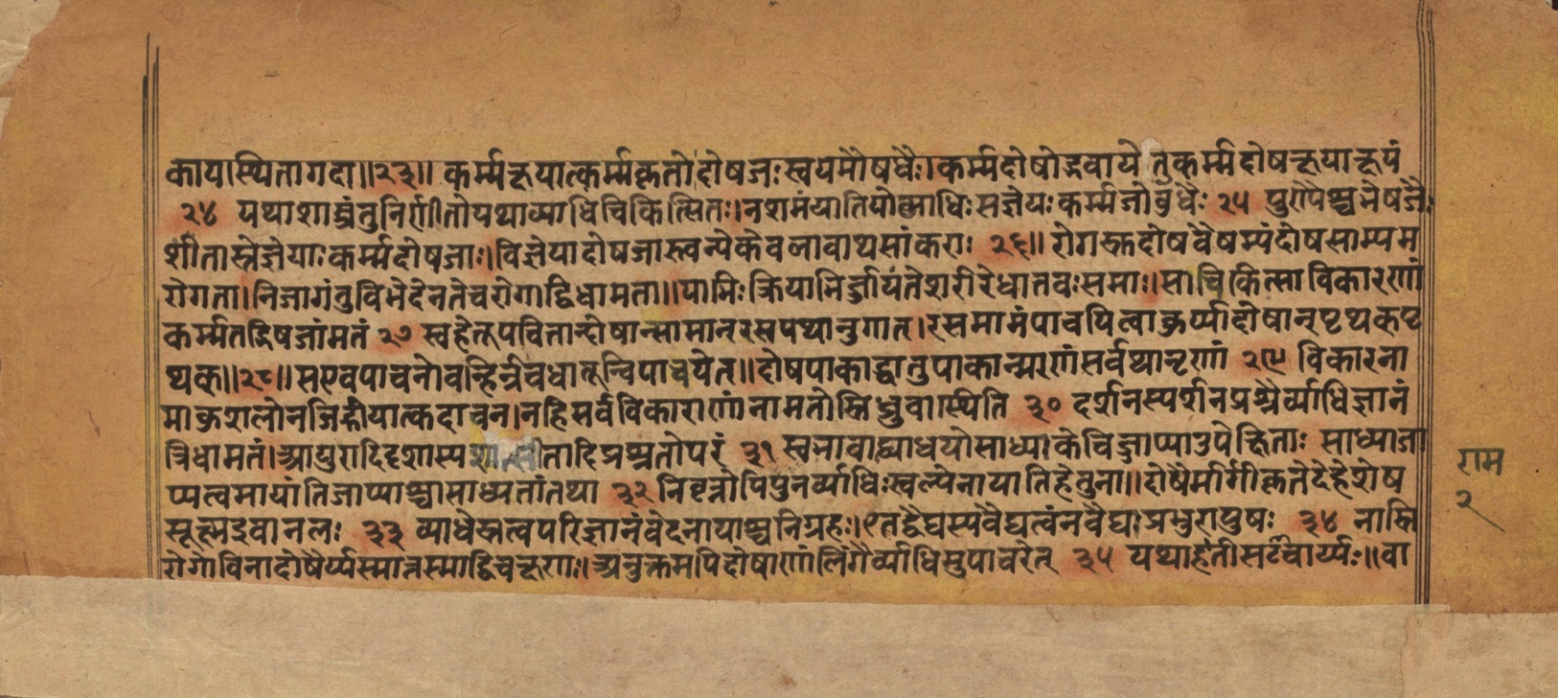 कायास्थितागदा॥२३॥ कर्म्मक्षयात्कर्म्मकृतो दोषजः स्वयमौषधैः। कर्म्मदोषोद्भवाये तु कर्म्मदोषक्षयाक्षयं
२४ यथाशास्त्रंतुनिर्णीतोयथाव्याधिचिकित्सितः।नशमंयातियोव्याधिःसज्ञेयःकर्म्मजोबुधैः २५ पुण्यैश्चभेषजैः
शांतास्तेज्ञेयाःकर्म्मदोषजाः।विज्ञेयादोषजास्त्वन्येकेवलावाथसांकराः २६॥ रोगस्तुदोषवैषम्यंदोषसाम्यम
रोगता।निजागंतुविभेदेनतेचरोगाद्विधामता॥याभिःक्रियाभिर्ज्जायंतेशरीरेधातवःसमाः।साचिकित्साविकाराणां
कर्म्मतद्भिषजांमतं २७ स्वहेतुपचितान्दोषान्सामान्रसपथानुगात्।रसमामंपाचयित्वाकुर्य्याद्दोषान्पृथक्पृ
थक्॥२८॥सएवपाचनोवन्हिर्न्नचधातून्विपाचयेत्॥दोषपाकाद्धातुपाकान्मरणंसर्वथानृणां २९ विकारना
माकुशलोनजिह्रीयात्कदाचन।नहिसर्वविकाराणांनामतोस्तिध्रुवास्थिति ३० दर्शनस्पर्शनप्रश्नैर्व्याधिज्ञानं
त्रिधामतं।आयुरादिदृशास्पर्शाच्छीतादिप्रष्नतोपरं ३१ स्वभावाद्व्याधयोसाध्याःकेचिज्जाप्याउपेक्षिताः साध्याजा
प्यत्वमायांतिजाप्याश्चासाध्यतांतथा ३२ निवृत्तोपिपुनर्व्याधिःस्वल्पेनायातिहेतुना॥दोषैर्मार्गीकृतेदेहेशेष
सूक्ष्मइवानलः ३३ व्याधेस्तत्वपरिज्ञानंवेदनायाश्चनिग्रहः।एतद्वैद्यस्यवैद्यत्वंनवैद्यःप्रभुरायुषः ३४ नास्ति
रोगोविनादोषैर्य्यस्मात्तस्माद्विचक्षणाः।अनुक्तमपिदोषाणांलिंगैर्व्याधिमुपाचरेत् ३५ यथाहंतीसटंचार्य्यः॥वा
राम
२